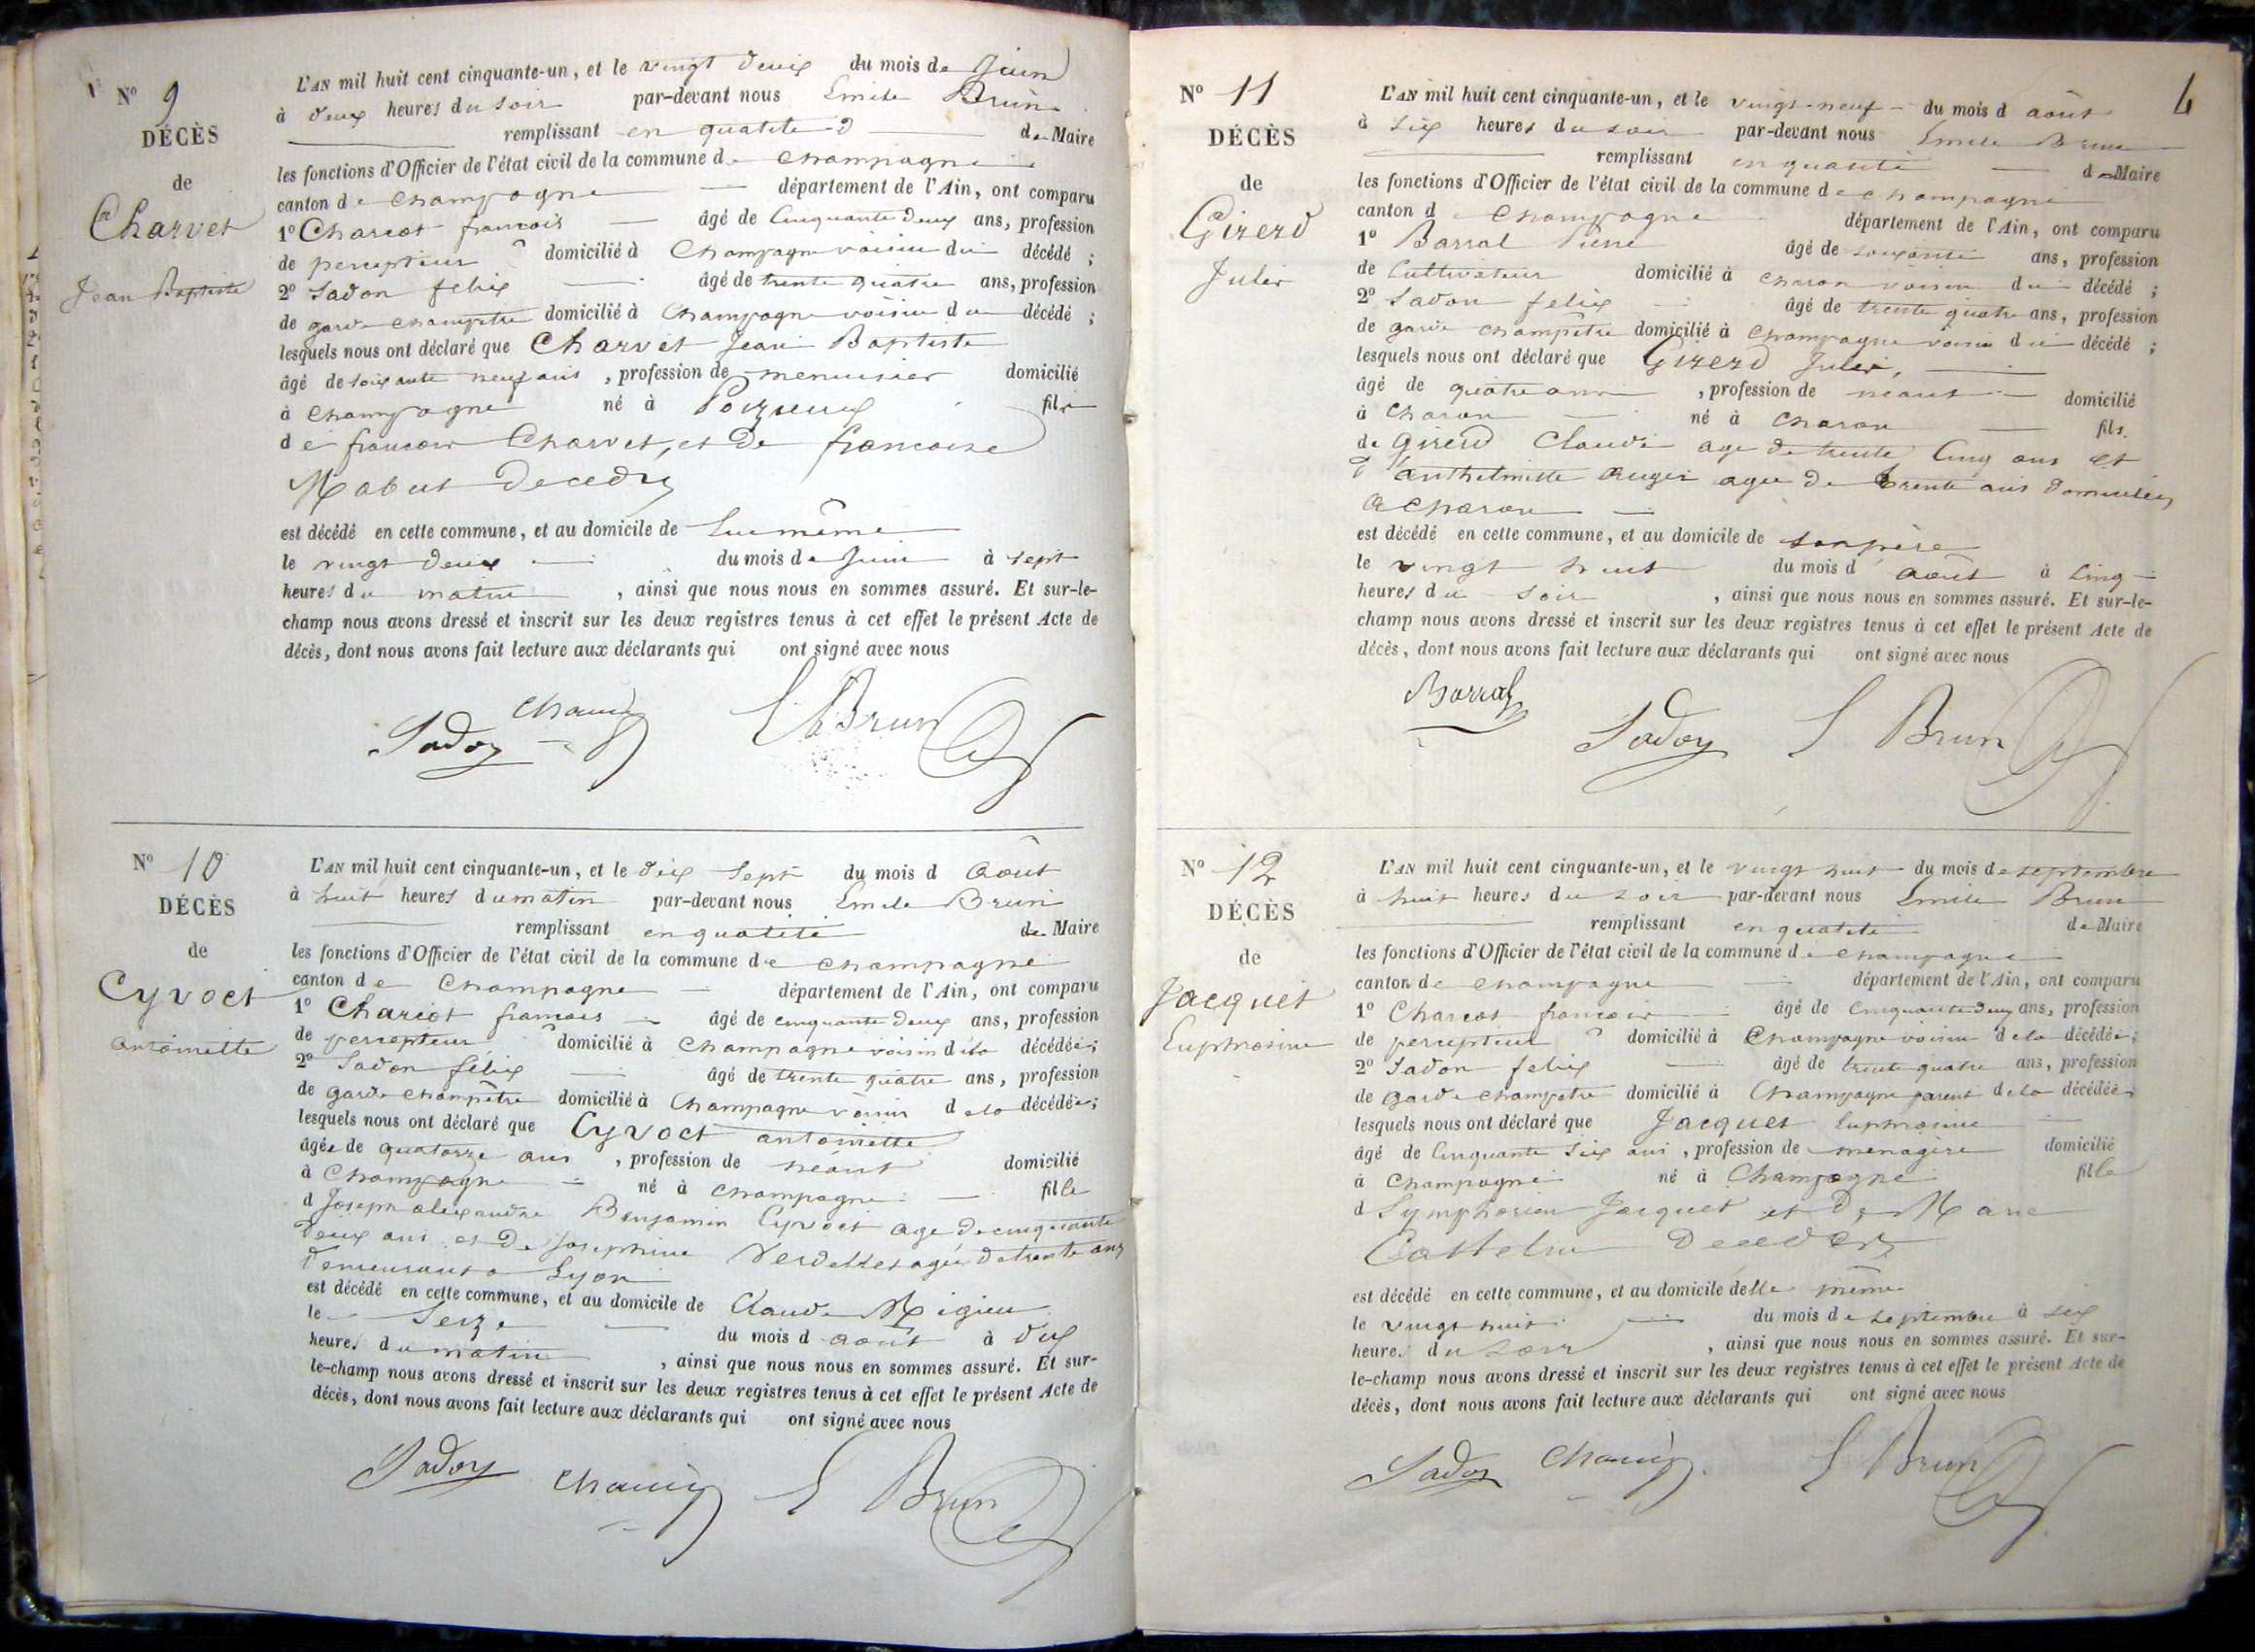 N° 9
DÉCÈS
de
Charvet
Jean Baptiste
L'AN mil huit cent cinquante-un, et le vingt deux du mois de Juin
à deux heures du soir par-devant nous Emile Brun
remplissant en qualité d de Maire
les fonctions d'Officier de l'état civil de la commune de champagne
canton de champagne département de l'Ain, ont comparu
1° Charcot francois âgé de Cinquante deux ans, profession
de percepteur domicilié à Champagne voisin du décédé ;
2° Sadon felix âgé de trente quatre ans, profession
de garde champêtre domicilié à Champagne voisin du décédé ;
lesquels nous ont déclaré que Charvet Jean Baptiste
âgé de soixante neuf ans , profession de menuisier domicilié
à champagne né à fils
de francois Charvet, et de francoise
Mabut Decedés
est décédé en cette commune, et au domicile de lui même
le vingt deux du mois de Juin à sept
heures du matin , ainsi que nous nous en sommes assuré. Et sur-le-
champ nous avons dressé et inscrit sur les deux registres tenus à cet effet le présent Acte de
décès, dont nous avons fait lecture aux déclarants qui ont signé avec nous
Sadon E Brun
N° 10
DÉCÈS
de
Cyvoct
antoinette
L'AN mil huit cent cinquante-un, et le dix sept du mois d Août
à huit heures du matin par-devant nous Emile Brun
remplissant en qualité de Maire
les fonctions d'Officier de l'état civil de la commune de champagne
canton de Champagne département de l'Ain, ont comparu
1° Charcot francois âgé de cinquante deux ans, profession
de percepteur domicilié à Champagne voisin de la décédée ;
2° Sadon félix âgé de trente quatre ans, profession
de garde champêtre domicilié à Champagne voisin de la décédée ;
lesquels nous ont déclaré que Cyvoct antoinette
âgée de quatorze ans , profession de néant domicilié
à Champagne né à champagne fille
d Joseph alexandre Benjamin Cyvoct age de cinquante
deux ans et de Josephine agée de trente ans
demeurant a Lyon
est décédé en cette commune, et au domicile de Claude Migieu
le Seize du mois d août à dix
heures du matin , ainsi que nous nous en sommes assuré. Et sur-
le-champ nous avons dressé et inscrit sur les deux registres tenus à cet effet le présent Acte de
décès, dont nous avons fait lecture aux déclarants qui ont signé avec nous
Sadon E Brun
4
N° 11
DÉCÈS
de
Girerd
Julie
L'AN mil huit cent cinquante-un, et le vingt-neuf du mois d août
à six heures du soir par-devant nous Emile Brun
remplissant en qualité de Maire
les fonctions d'Officier de l'état civil de la commune de champagne
canton d champagne département de l'Ain, ont comparu
1° Barral Pierre âgé de soixante ans, profession
de Cultivateur domicilié à charon voisin du décédé ;
2° Sadon felix âgé de trente quatre ans, profession
de garde champêtre domicilié à champagne voisin du décédé ;
lesquels nous ont déclaré que Girerd
âgé de quatre ans , profession de neant domicilié
à Charon né à charon fils
de Girerd Claude age de trente Cinq ans et
d'anthelmette auger agee de trente ans domicilies
a charon
est décédé en cette commune, et au domicile de son père
le vingt huit du mois d août à Cinq
heures du soir , ainsi que nous nous en sommes assuré. Et sur-le-
champ nous avons dressé et inscrit sur les deux registres tenus à cet effet le présent Acte de
décès, dont nous avons fait lecture aux déclarants qui ont signé avec nous
Barral Sadon E Brun
N° 12
DÉCÈS
de
Jacquet
Euphrosine
L'AN mil huit cent cinquante-un, et le vingt huit du mois de septembre
à huit heures du soir par-devant nous Emile Brun
remplissant en qualité de Maire
les fonctions d'Officier de l'état civil de la commune de champagne
canton de champagne département de l'Ain, ont comparu
1° Charcot francois âgé de Cinquante deux ans, profession
de percepteur domicilié à Champagne voisin de la décédée ;
2° Sadon felix âgé de trente quatre ans, profession
de garde champetre domicilié à Champagne parent de la décédée ;
lesquels nous ont déclaré que Jacquet Euphrosine
âgé de Cinquante six ans , profession de menagère domicilié
à Champagne né à Champagne fille
d Symphorien Jacquet et de Marie
Decedes
est décédé en cette commune, et au domicile delle même
le vingt huit du mois de septembre à six
heures du soir , ainsi que nous nous en sommes assuré. Et sur-
le-champ nous avons dressé et inscrit sur les deux registres tenus à cet effet le présent Acte de
décès, dont nous avons fait lecture aux déclarants qui ont signé avec nous
Sadon E Brun